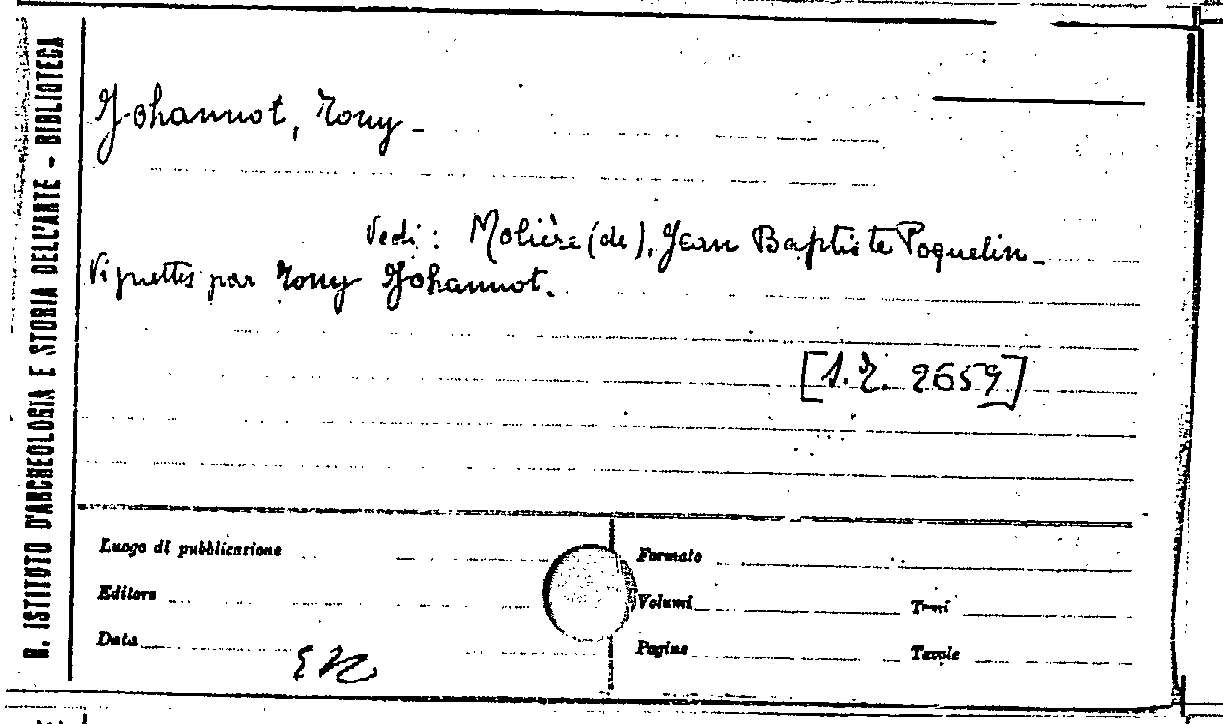 R. ISTITUTO D'ARCHEOLOGIA E STORIA DELL'ARTE - BIBLIOTECA
Johannot, Tony -
Vedi: Molière (de), Jean Baptiste Poquelin -
Vignettes par Tony Johannot.
[S.R. 2659]
Luogo di pubblicazione
Editore
Data
Formato
Volumi
Tomi
Pagine
Tavole